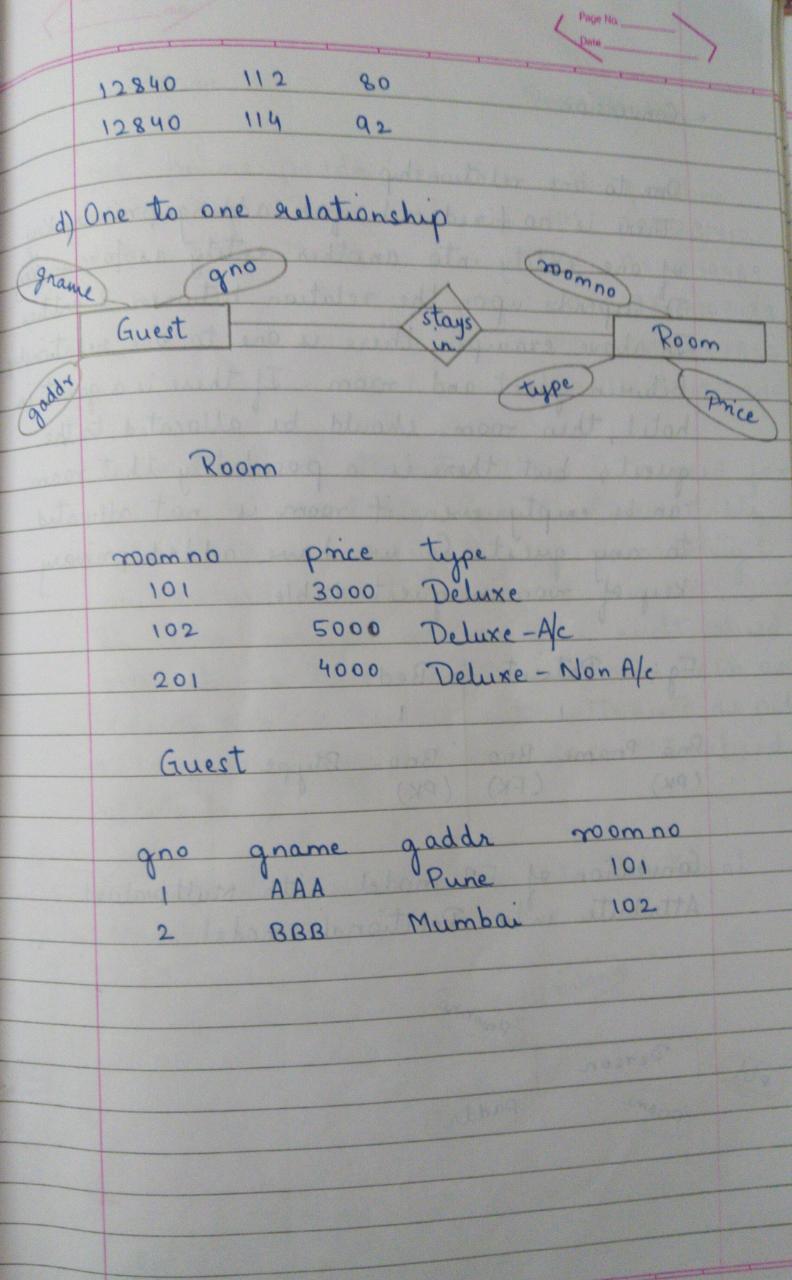 Page No.
Date
12840 112 80
12840 114 92
d) One to one relationship
gname gno roomno
Guest stays in Room
gaddr type Price
Room
roomno price type
101 3000 Deluxe
102 5000 Deluxe-A/c
201 4000 Deluxe - Non A/c
Guest
gno gname gaddr roomno
1 AAA Pune 101
2 BBB Mumbai 102